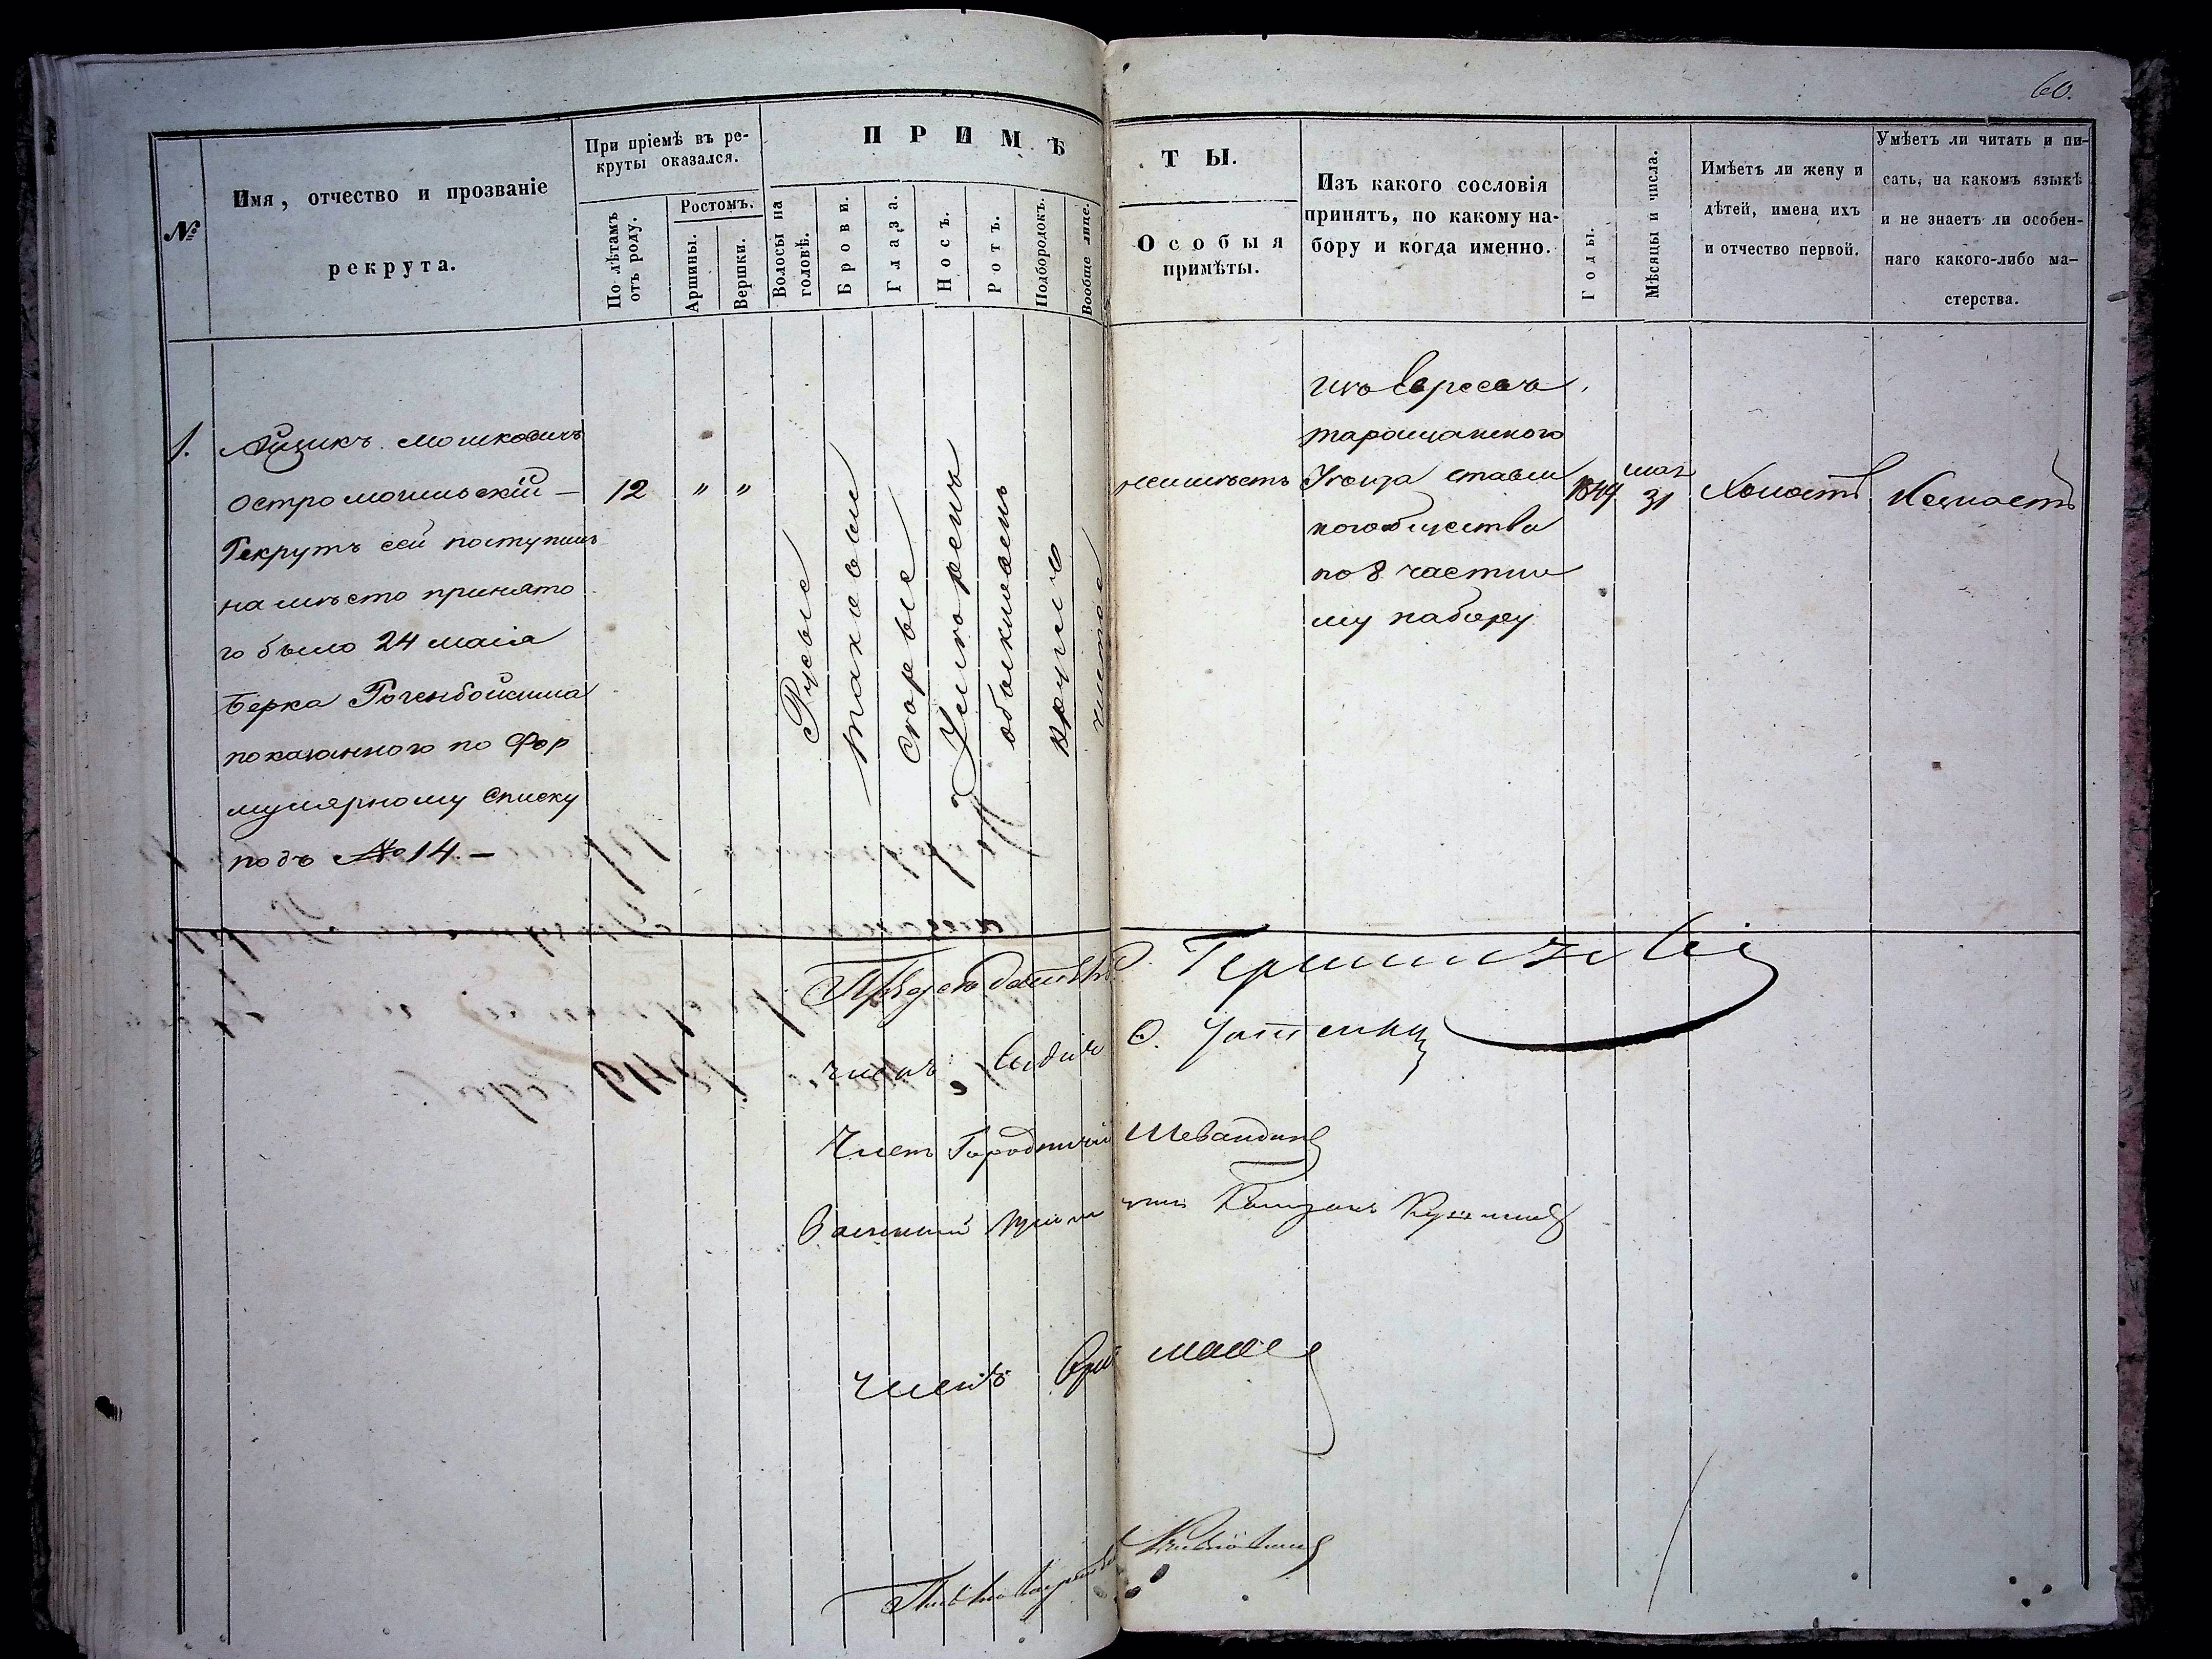 60.
№
Имя, отчество и прозваніе
рекрута.
При пріемѣ въ ре-
круты оказался.
По лѣтамъ
отъ роду.
Ростомъ.
Аршины.
Вершки.
ПРИМѢ
Волосы на
головѣ.
Брови.
Глаза.
Носъ.
Ротъ.
Подбородокъ.
Вообще лице.
ТЫ.
Особыя
примѣты.
Изъ какого сословія
принятъ, по какому на-
бору и когда именно.
Годы.
Мѣсяцы и числа.
Имѣетъ ли жену и
дѣтей, имена ихъ
и отчество первой.
Умѣетъ ли читать и пи-
сать, на какомъ языкѣ
и не знаетъ ли особен-
наго какого-либо ма-
стерства.
1.
Айзикъ Мошковичъ
Остромогильскій —
Рекрутъ сей поступилъ
на мѣсто принято
го было 24 маія
Берка
показанного по Фор
мулярному Списку
подъ № 14. —
12
"
"
Русые
такевои
сѣрые
Умѣренъ
обыкновенъ
кругло
чистое
неимѣетъ
изъ Евреевъ
таращанского
Уѣзда ставис
кого общества
по 8 частно
му набору
1849
мая
31
Холостъ
Незнаетъ
Предсѣдатель
членъ Судья
Членъ Городничій
Военный пріем
членъ